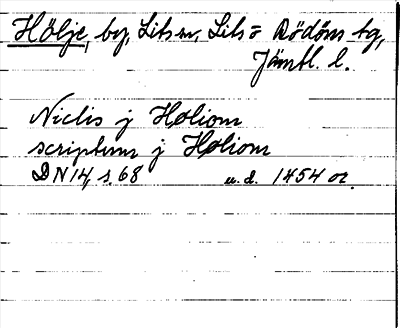 Hölje, by, Lits sn, Lits o Rödöns tg,
Jämtl. l.
Niclis j Høliom
scriptum j Høliom
DN 14, s. 68 u.d. 1454 or.